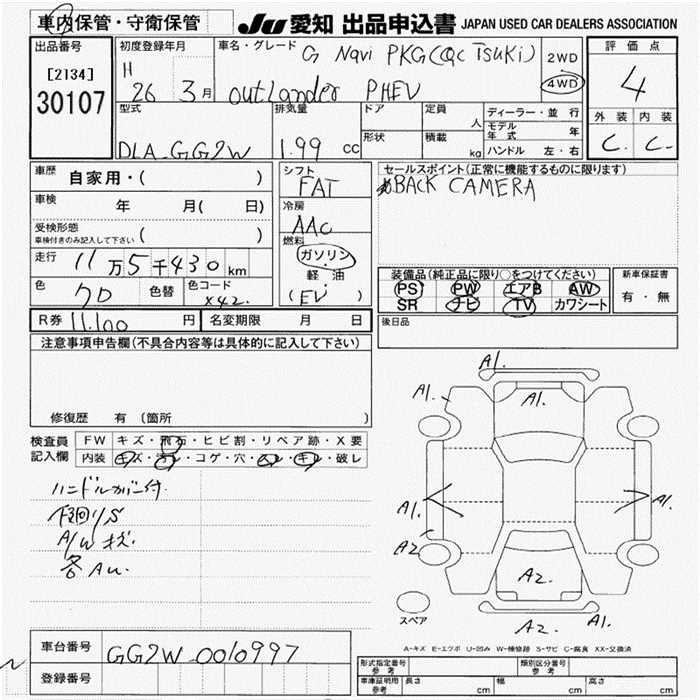 車内保管・守衛保管 JU 愛知 出品申込書 JAPAN USED CAR DEALERS ASSOCIATION
出品番号
[2134]
30107
初度登録年月
H 26 3月
車名・グレード G Navi PKG(QC Tsuki)
outlander PHEV
2WD
4WD
評価点
4
外装 内装
C. C-
型式
DLA-GG2W
排気量
1.99 cc
ドア
形状
定員 人
積載 kg
ディーラー・並行
モデル年式 年
ハンドル 左・右
車歴 自家用・( )
車検 年 月( 日)
受検形態
車検付きのみ記入して下さい ( )
走行 11万5千430km
色 クロ 色替 色コード X42.
R券 11,100 円 名変期限 月 日
シフト
FAT
冷房
AAC
燃料
ガソリン・
軽油・
(EV)
セールスポイント(正常に機能するものに限ります)
BACK CAMERA
装備品(純正品に限り○をつけてください)
PS PW エアB AW
SR ナビ TV カワシート
新車保証書
有・無
後日品
注意事項申告欄(不具合内容等は具体的に記入して下さい)
修復歴 有(箇所 )
検査員
記入欄
FW キズ・飛石・ヒビ割・リペア跡・X要
内装 キズ・汚れ・コゲ・穴・スレ・キレ・破レ
ハンドルカバー付
下廻りS
A/Wキズ
各AU.
A1.
A1. A1.
A1. A1.
A2
A2.
A2. A1.
スペア
A-キズ E-エクボ U-凹み W-補修跡 S-サビ C-腐食 XX-交換済
車台番号 GG2W-0010997
登録番号
形式指定番号
参考
類別区分番号
参考
車庫証明用
参考
長さ cm 幅 cm 高さ cm